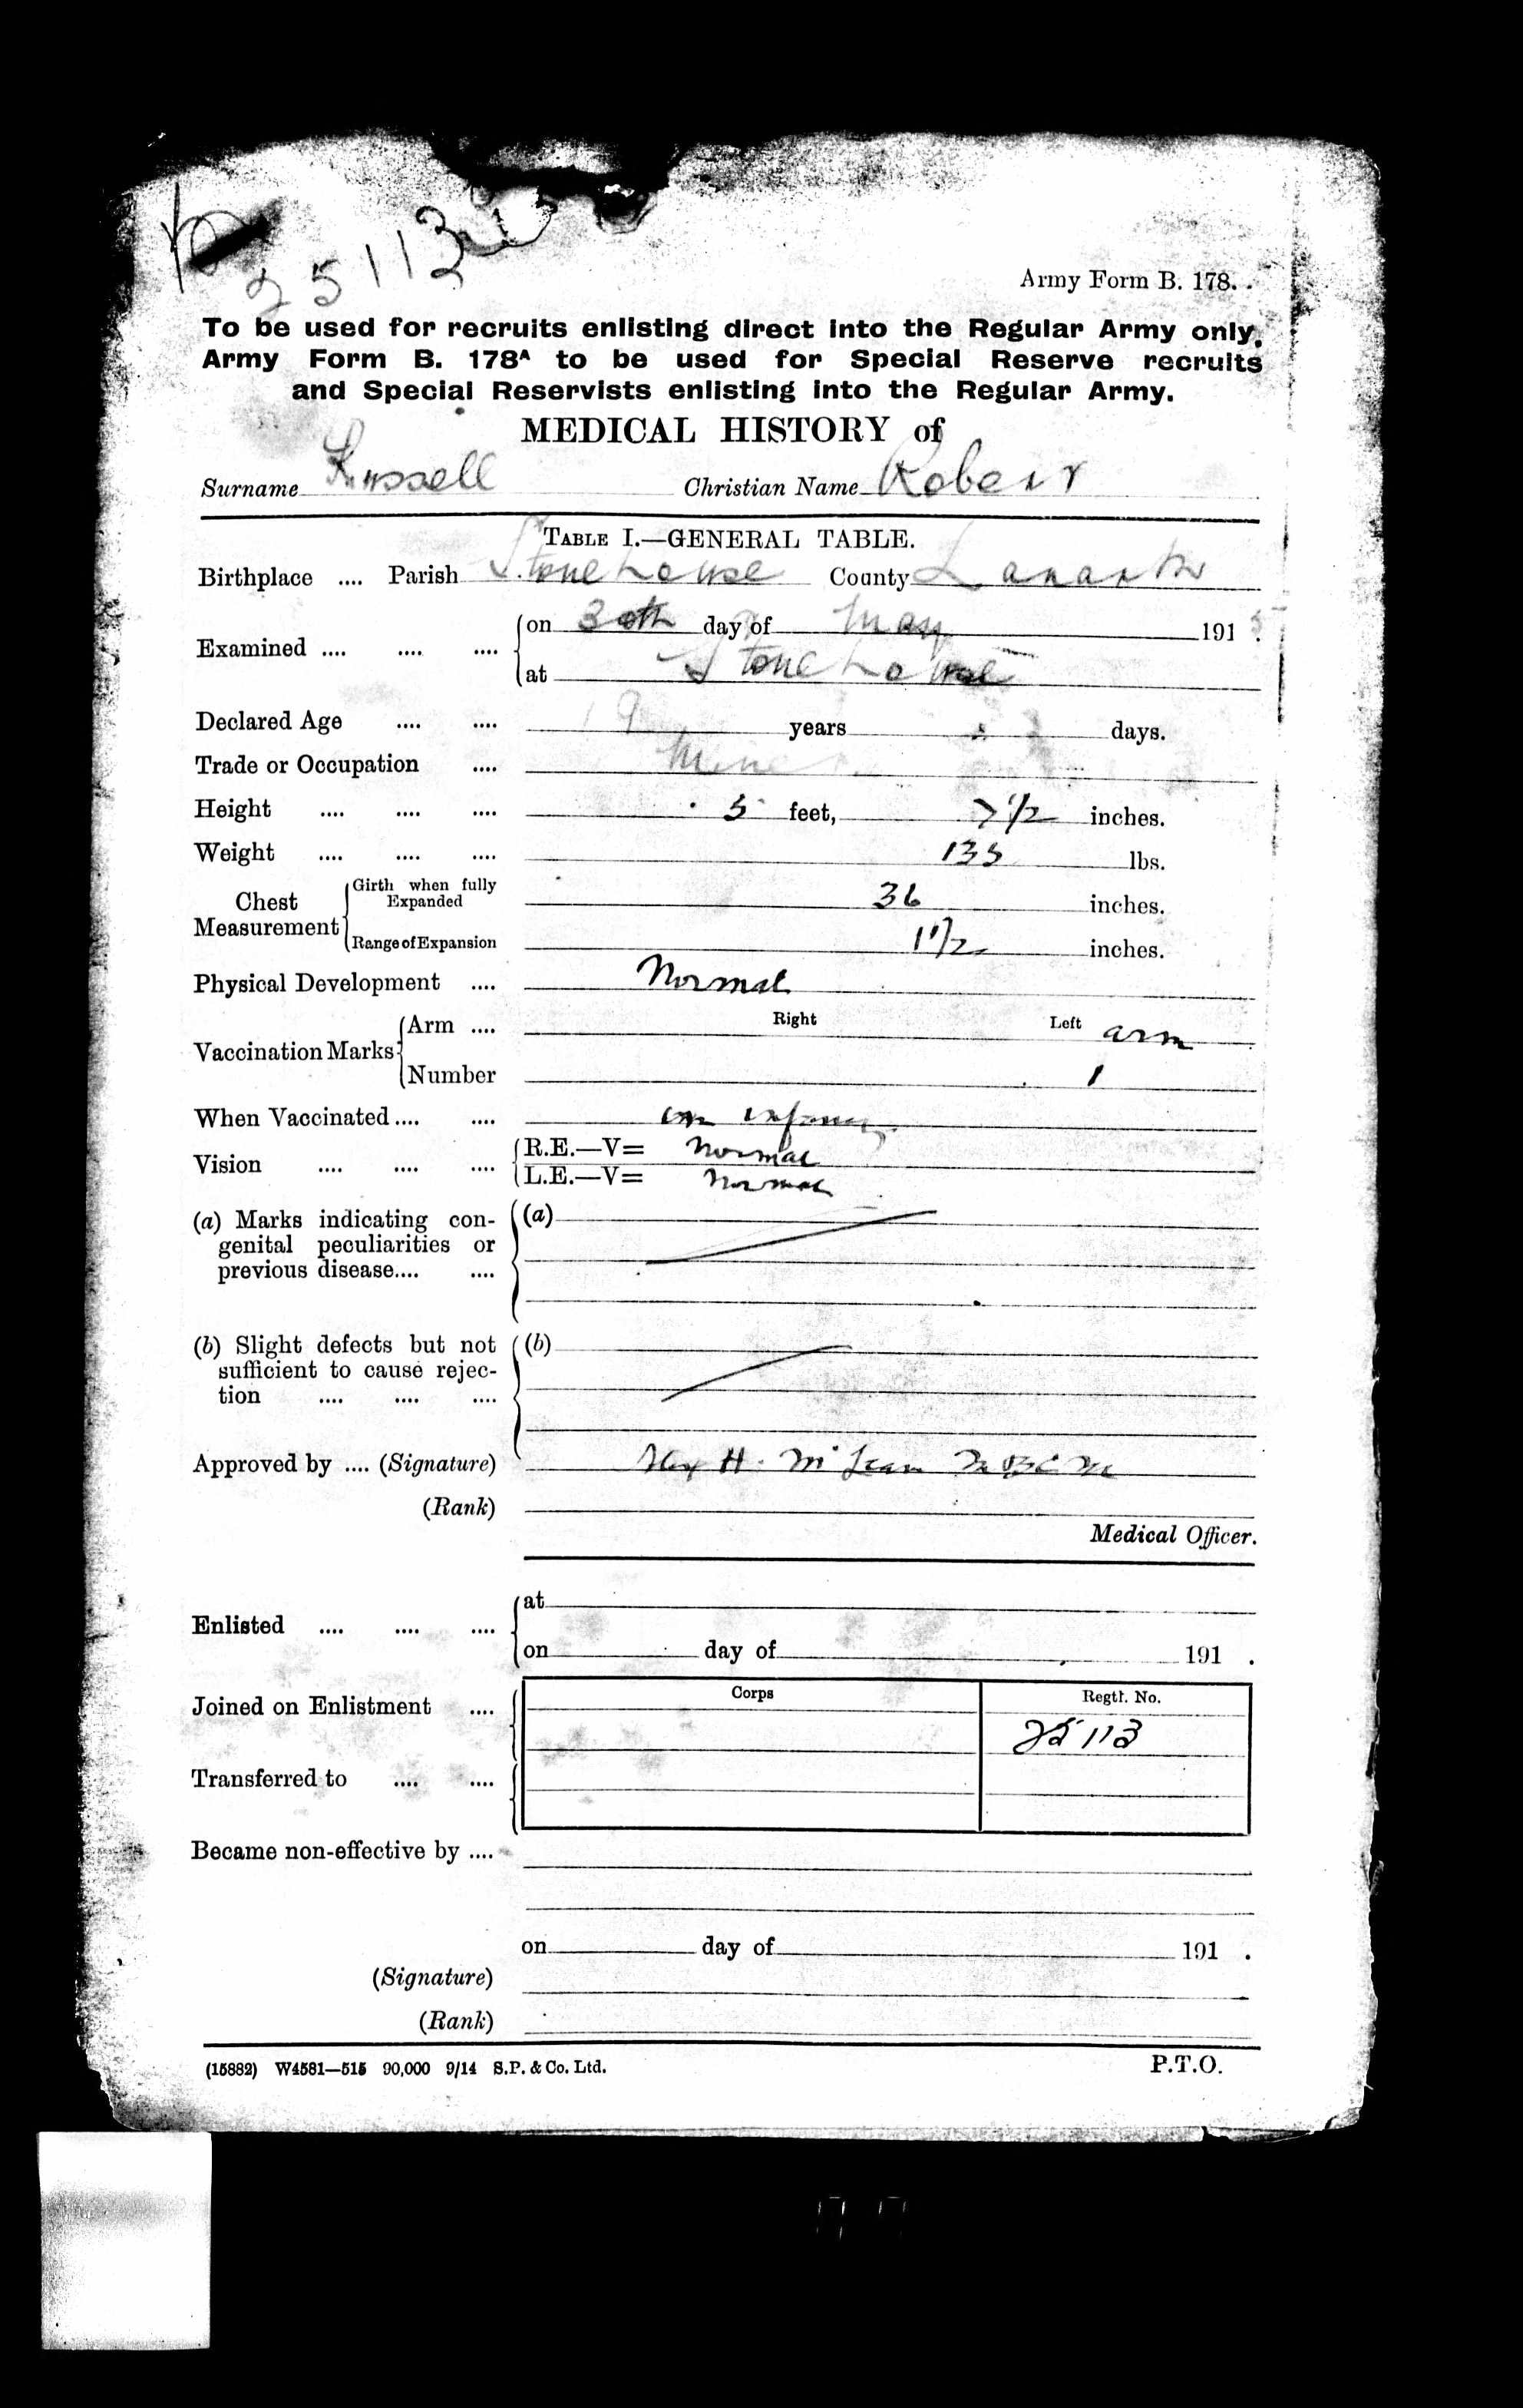 25113
Army Form B. 178.
To be used for recruits enlisting direct into the Regular Army only.
Army Form B. 178ᴬ to be used for Special Reserve recruits
and Special Reservists enlisting into the Regular Army.
MEDICAL HISTORY of
Surname Russell Christian Name Robert
TABLE I.—GENERAL TABLE.
Birthplace .... Parish Stonehouse County Lanark
Examined .... .... .... on 30th day of May 1915.
at Stonehouse
Declared Age .... .... 19 years days.
Trade or Occupation .... Miner
Height .... .... .... 5 feet, 7 1/2 inches.
Weight .... .... .... 135 lbs.
Chest Measurement Girth when fully Expanded 36 inches.
Range of Expansion 1 1/2 inches.
Physical Development .... Normal
Vaccination Marks Arm .... Right Left arm
Number 1
When Vaccinated .... .... in infancy
Vision .... .... .... R.E.—V= Normal
L.E.—V= Normal
(a) Marks indicating con- (a)
genital peculiarities or
previous disease.... ....
(b) Slight defects but not (b)
sufficient to cause rejec-
tion .... .... ....
Approved by .... (Signature) Alex H. McLean M B C M
(Rank)
Medical Officer.
Enlisted .... .... .... at
on day of 191 .
Corps Regtl. No.
Joined on Enlistment ....
25113
Transferred to .... ....
Became non-effective by ....
on day of 191 .
(Signature)
(Rank)
(15882) W4581—515 90,000 9/14 S.P. & Co. Ltd. P.T.O.